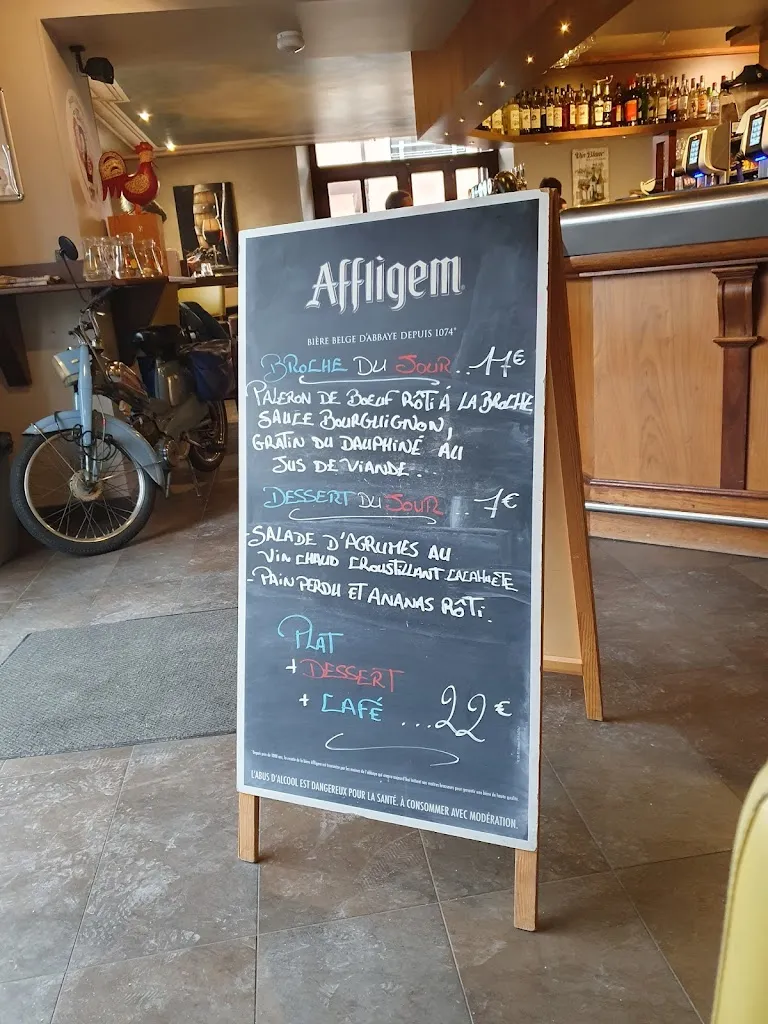 Affligem
BIÈRE BELGE D'ABBAYE DEPUIS 1074*
BROCHE DU JOUR.. 17€
PALERON DE BOEUF RÔTI À LA BROCHE
SAUCE BOURGUIGNON,
GRATIN DU DAUPHINÉ AU
JUS DE VIANDE...
DESSERT DU JOUR... 7€
-SALADE D'AGRUMES AU
VIN CHAUD CROUSTILLANT CACAHUETE
- PAIN PERDU ET ANANAS RÔTI.
PLAT
+ DESSERT
+ CAFÉ ...22€
L'ABUS D'ALCOOL EST DANGEREUX POUR LA SANTÉ. À CONSOMMER AVEC MODÉRATION.